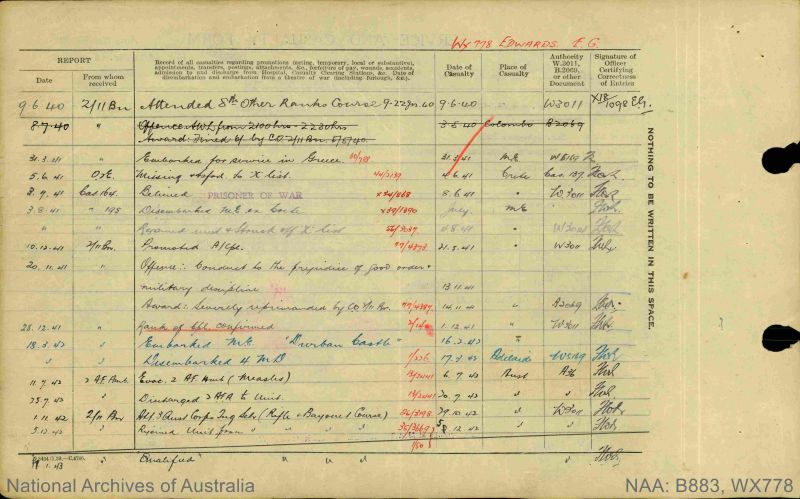 WX778 EDWARDS. E. G.
REPORT
Record of all casualties regarding promotions (acting, temporary, local or substantive), appointments, transfers, postings, attachments, &c., forfeiture of pay, wounds, accidents, admission to and discharge from Hospital, Casualty Clearing Stations, &c. Date of disembarkation and embarkation from a theatre of war (including furlough, &c.).
Date
From whom received
Date of Casualty
Place of Casualty
Authority W.3011, B.2069, or other Document
Signature of Officer Certifying Correctness of Entries
9.6.40 2/11 Bn Attended 8th Other Ranks Course 9-22.6.40 9.6.40 W3011
8.7.40 " Offence AWL from 2100hrs - 2230hrs 3.5.40 Colombo B2069
Award: Fined £1 by CO 2/11 Bn.
31.3.41 " Embarked for service in Greece 31.3.41 M.E.
5.6.41 Missing to X list. 4.6.41 Crete Cas.
8.7.41 Cas 164. Believed PRISONER OF WAR 8.6.41 " W3011
3.8.41 " 195 Disembarked M.E. ex Crete July M.E.
" " Rejoined unit & Struck off X list "
10.12.41 2/11 Bn. Promoted A/Cpl. 21.5.41 " W3011
20.11.41 Offence: Conduct to the prejudice of good order &
military discipline 13.11.41
Award: Severely reprimanded by CO 2/11 Bn. 14.11.41 " B2069
28.12.41 " Rank of Cpl. confirmed 1.12.41 " W3011
18.3.42 " Embarked M.E. "Durban Castle" 16.2.42 "
" " Disembarked 4 M.D. 17.3.42 Adelaide
11.7.42 2 A.F. Amb. Evac. 2 AF Amb (Measles) 6.7.42 Aust A36
25.7.42 " Discharged 2 AFA to Unit. 20.7.42 " "
1.11.42 2/11 Bn Att 3 Aust Corps Tng Sch (Rifle & Bayonet Course) 29.10.42 " W3011
5.12.42 " Rejoined Unit from " " " 12.42 " "
1.43 "Qualified" " " " "
NOTHING TO BE WRITTEN IN THIS SPACE.
National Archives of Australia
NAA: B883, WX778